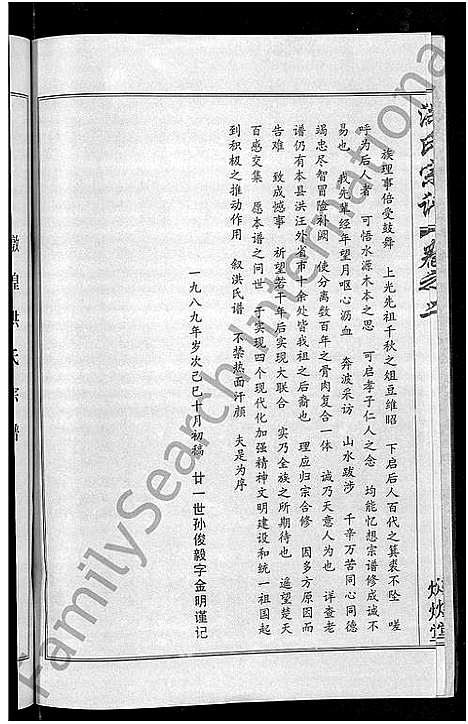 洪氏宗谱 卷之上
炊烌堂
族理事倍受鼓舞　上光先祖千秋之俎豆维昭　下启后人百代之箕裘不坠　嗟
呼为后人者　可悟水源木本之思　可启孝子仁人之念　均能忆想宗谱修成诚不
易也　我先辈经年望月呕心沥血　奔波采访　山水跋涉　千辛万苦同心同德
竭忠尽智冒险补阙　使分离数百年之骨肉复合一体　诚乃天意人为也　详查老
谱仍有本县洪江外省市十余处皆我祖之后裔也　理应归宗合修　因多方原因而
告难　致成憾事　祈望若干年后实现大联合　实乃全族之所期待也　遥望楚天
百感交集　愿本谱之问世　于实现四个现代化加强精神文明建设和统一祖国起
到积极之推动作用　叙洪氏谱　不禁热面汗颜　夫是为序
一九八九年岁次己巳十月初稿　廿一世孙俊毅字金明谨记
敦煌洪氏宗谱
FamilySearch International